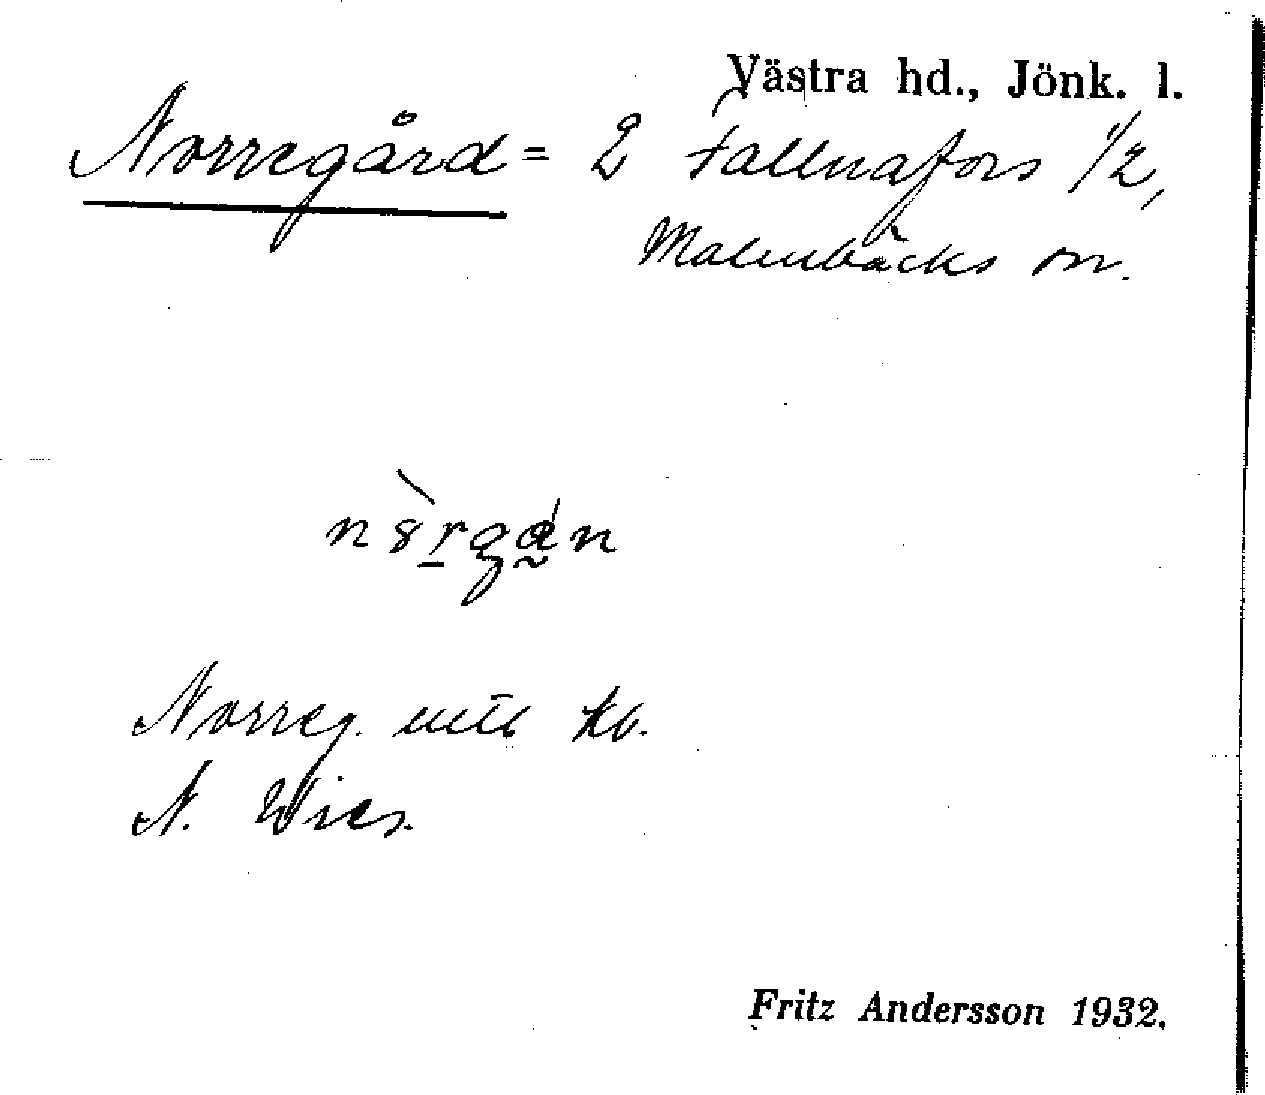 Västra hd., Jönk. l.
Norregård = 2 Fallnafors 1/2,
Malmbäcks sn.
Norreg. mtl kv.
N.
Fritz Andersson 1932.